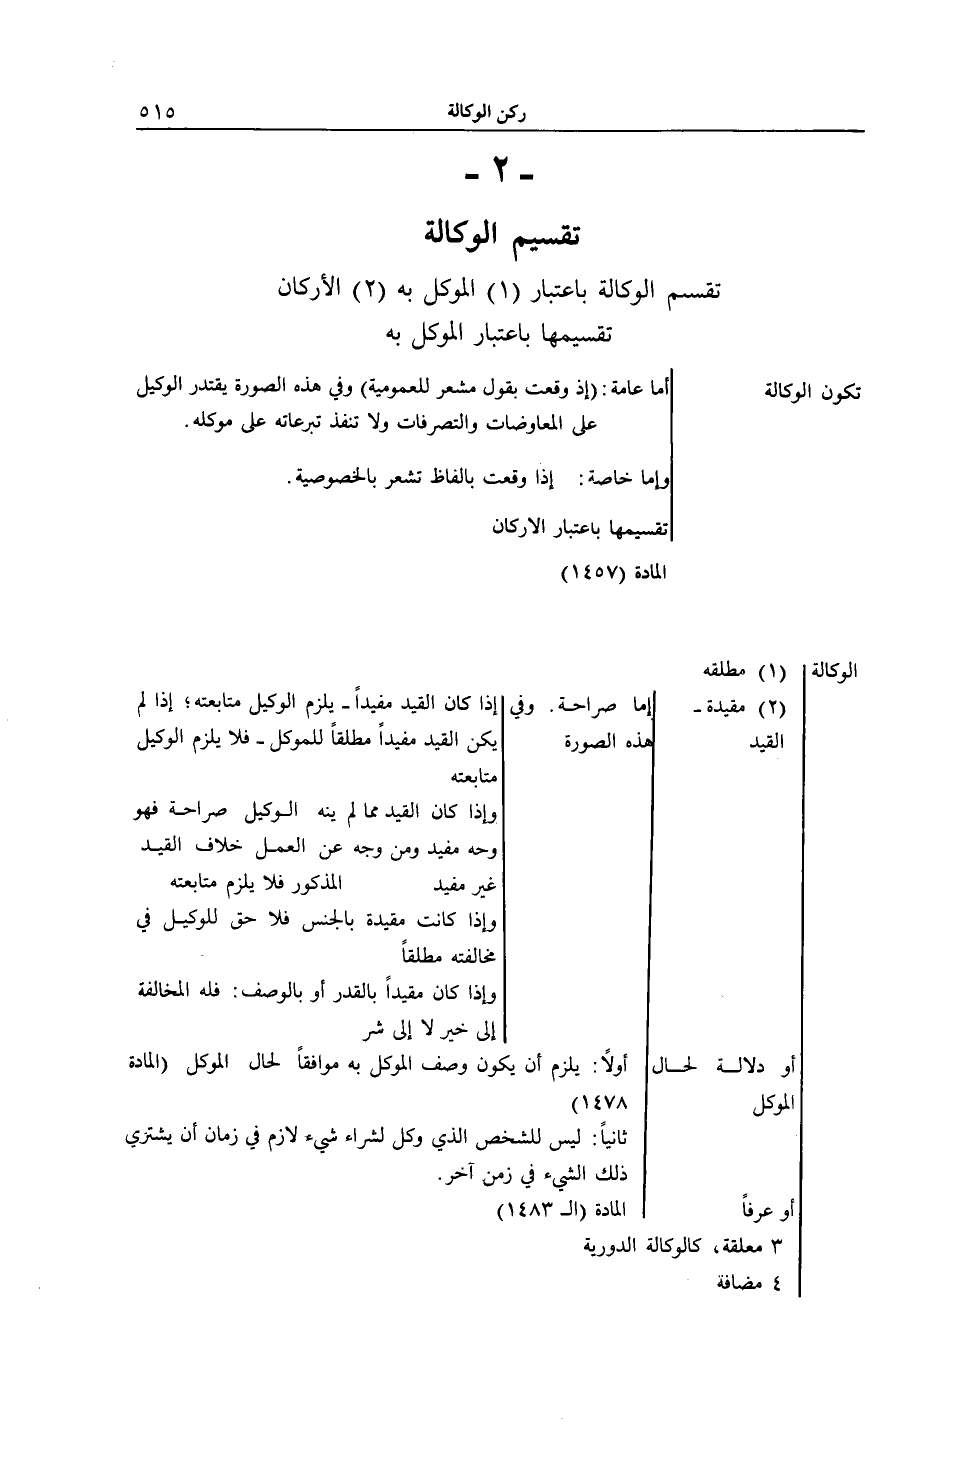 ركن الوكالة ٥١٥
- ٢ -
تقسيم الوكالة
تقسم الوكالة باعتبار (١) الموكل به (٢) الأركان
تقسيمها باعتبار الموكل به
تكون الوكالة أما عامة: (إذ وقعت بقول مشعر للعمومية) وفي هذه الصورة يقتدر الوكيل
على المعاوضات والتصرفات ولا تنفذ تبرعاته على موكله.
وإما خاصة: إذا وقعت بالفاظ تشعر بالخصوصية.
تقسيمها باعتبار الاركان
المادة (١٤٥٧)
الوكالة (١) مطلقه
(٢) مقيدة - إما صراحة. وفي إذا كان القيد مفيداً - يلزم الوكيل متابعته؛ إذا لم
القيد هذه الصورة يكن القيد مفيداً مطلقاً للموكل - فلا يلزم الوكيل
متابعته
وإذا كان القيد مما لم ينه الوكيل صراحة فهو
وحه مفيد ومن وجه عن العمل خلاف القيد
غير مفيد المذكور فلا يلزم متابعته
وإذا كانت مقيدة بالجنس فلا حق للوكيل في
مخالفته مطلقاً
وإذا كان مقيداً بالقدر أو بالوصف: فله المخالفة
إلى خير لا إلى شر
أو دلالة لحال أولاً: يلزم أن يكون وصف الموكل به موافقاً لحال الموكل (المادة
الموكل ١٤٧٨)
ثانياً: ليس للشخص الذي وكل لشراء شيء لازم في زمان أن يشتري
ذلك الشيء في زمن آخر.
أو عرفاً المادة (الـ ١٤٨٣)
٣ معلقة، كالوكالة الدورية
٤ مضافة